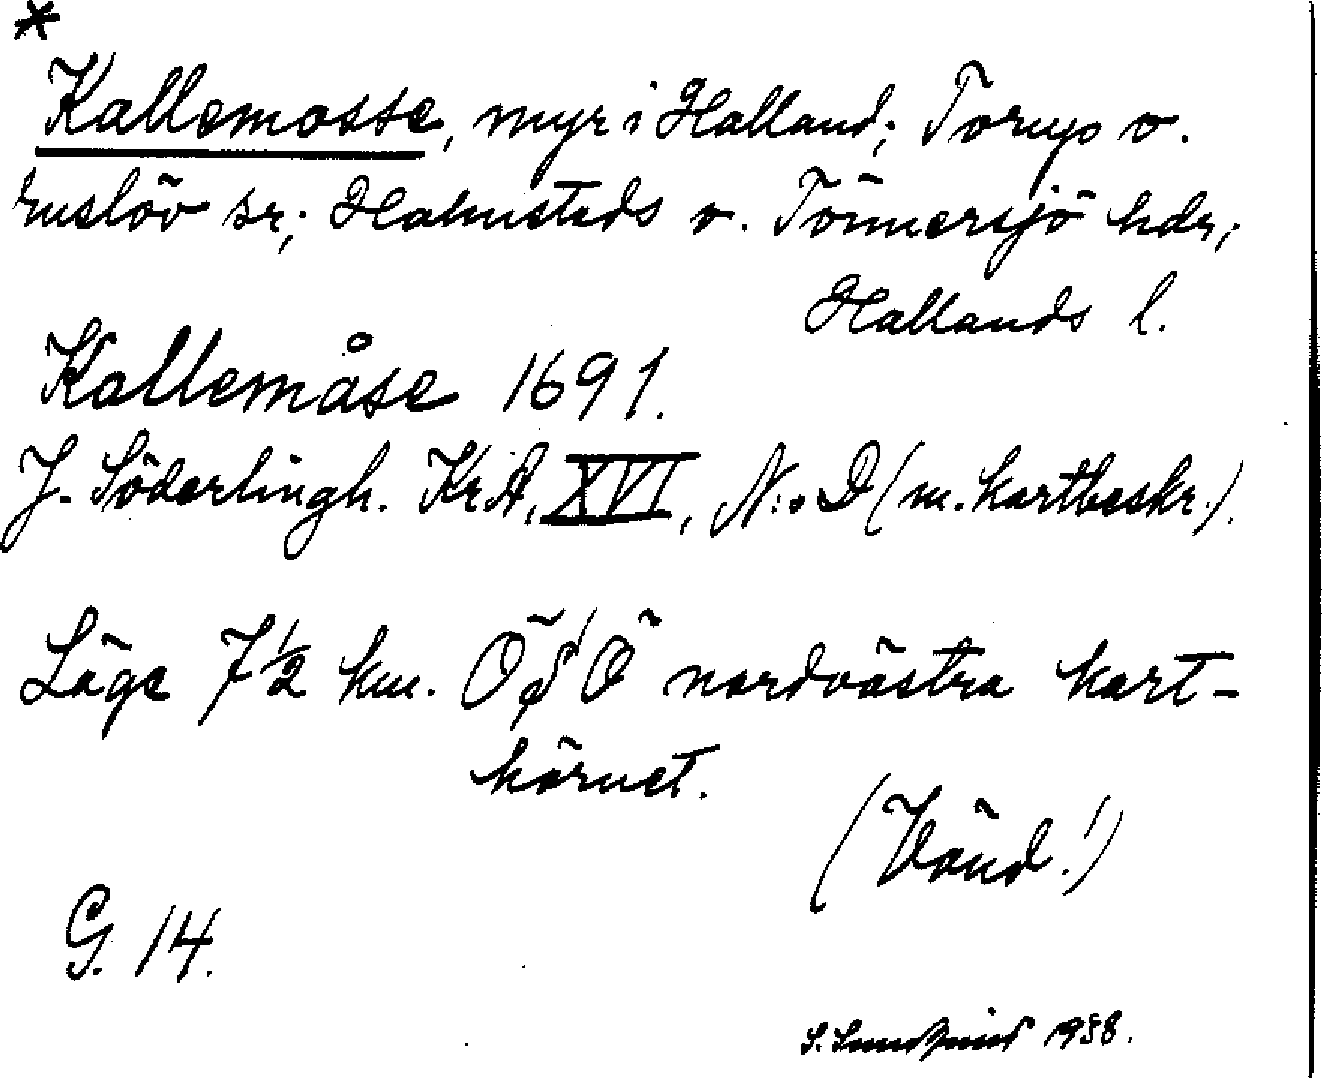 *
Kallemosse, myr i Halland; Torups o.
Enslöv sr; Halmstads o. Tönnersjö hdr;
Hallands l.
Kallemåse 1691.
J. Söderlingh. KrA, XVI, N:o D (m. kartbeskr.).
Läge 7 1/2 km. ÖSÖ nordvästra kart-
hörnet.
(Vänd!)
G. 14.
S. 1958.